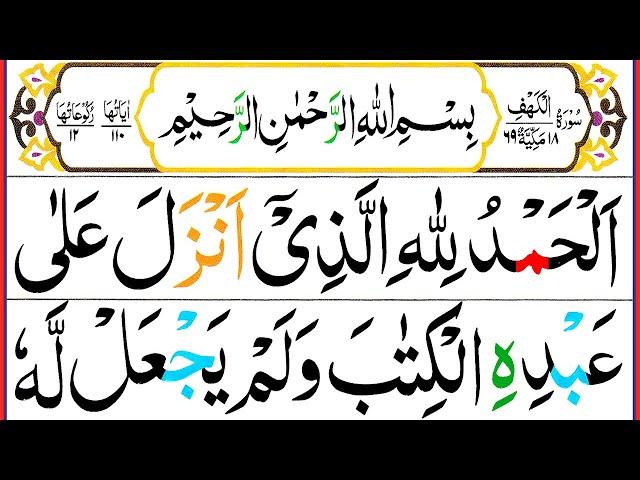 سُوْرَةُ الْكَهْفِ ١٨ مَكِّيَّةٌ ٦٩
بِسْمِ اللهِ الرَّحْمٰنِ الرَّحِيْمِ
اٰيَاتُهَا ١١٠ رُكُوْعَاتُهَا ١٢
اَلْحَمْدُ لِلّٰهِ الَّذِیْۤ اَنْزَلَ عَلٰی
عَبْدِهِ الْكِتٰبَ وَلَمْ يَجْعَلْ لَّهٗ